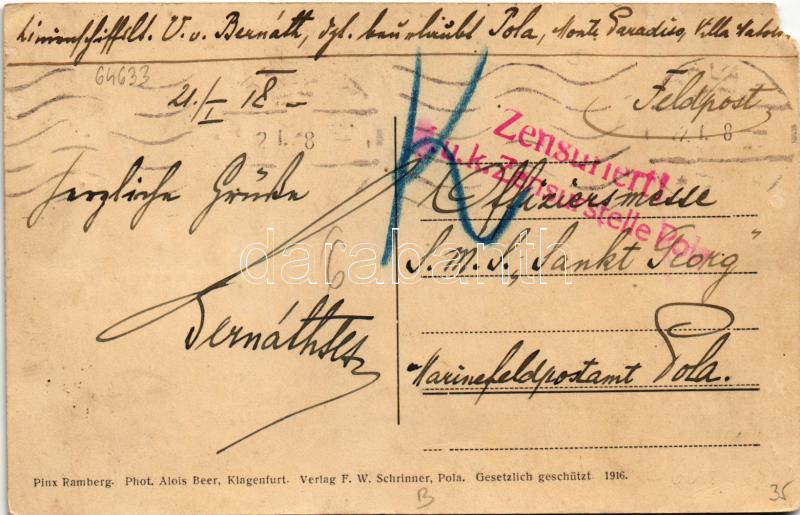 Linienschiffslt. V. v. Bernáth, dzt. beurlaubt Pola, Monte Paradiso, Villa
64633
21./I 18 -
Feldpost
Zensuriert!
K.u.k. Zensurstelle Pola
K
Herzliche Grüße
Offiziersmesse
S.M.S. „Sankt Georg"
6
darabanth
Marinefeldpostamt Pola.
Pinx Ramberg. Phot. Alois Beer, Klagenfurt. Verlag F. W. Schrinner, Pola. Gesetzlich geschützt 1916.
B
35